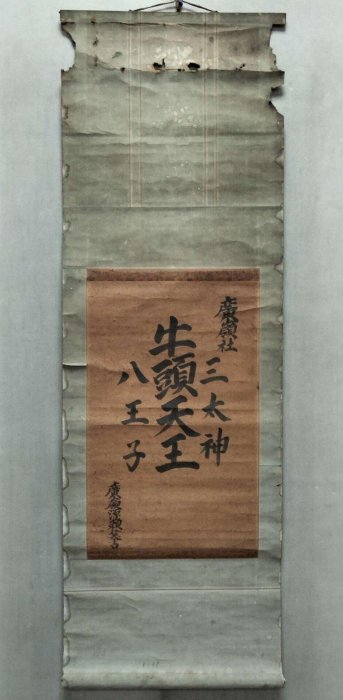 廣嶺社
三太神
牛頭天王
八王子